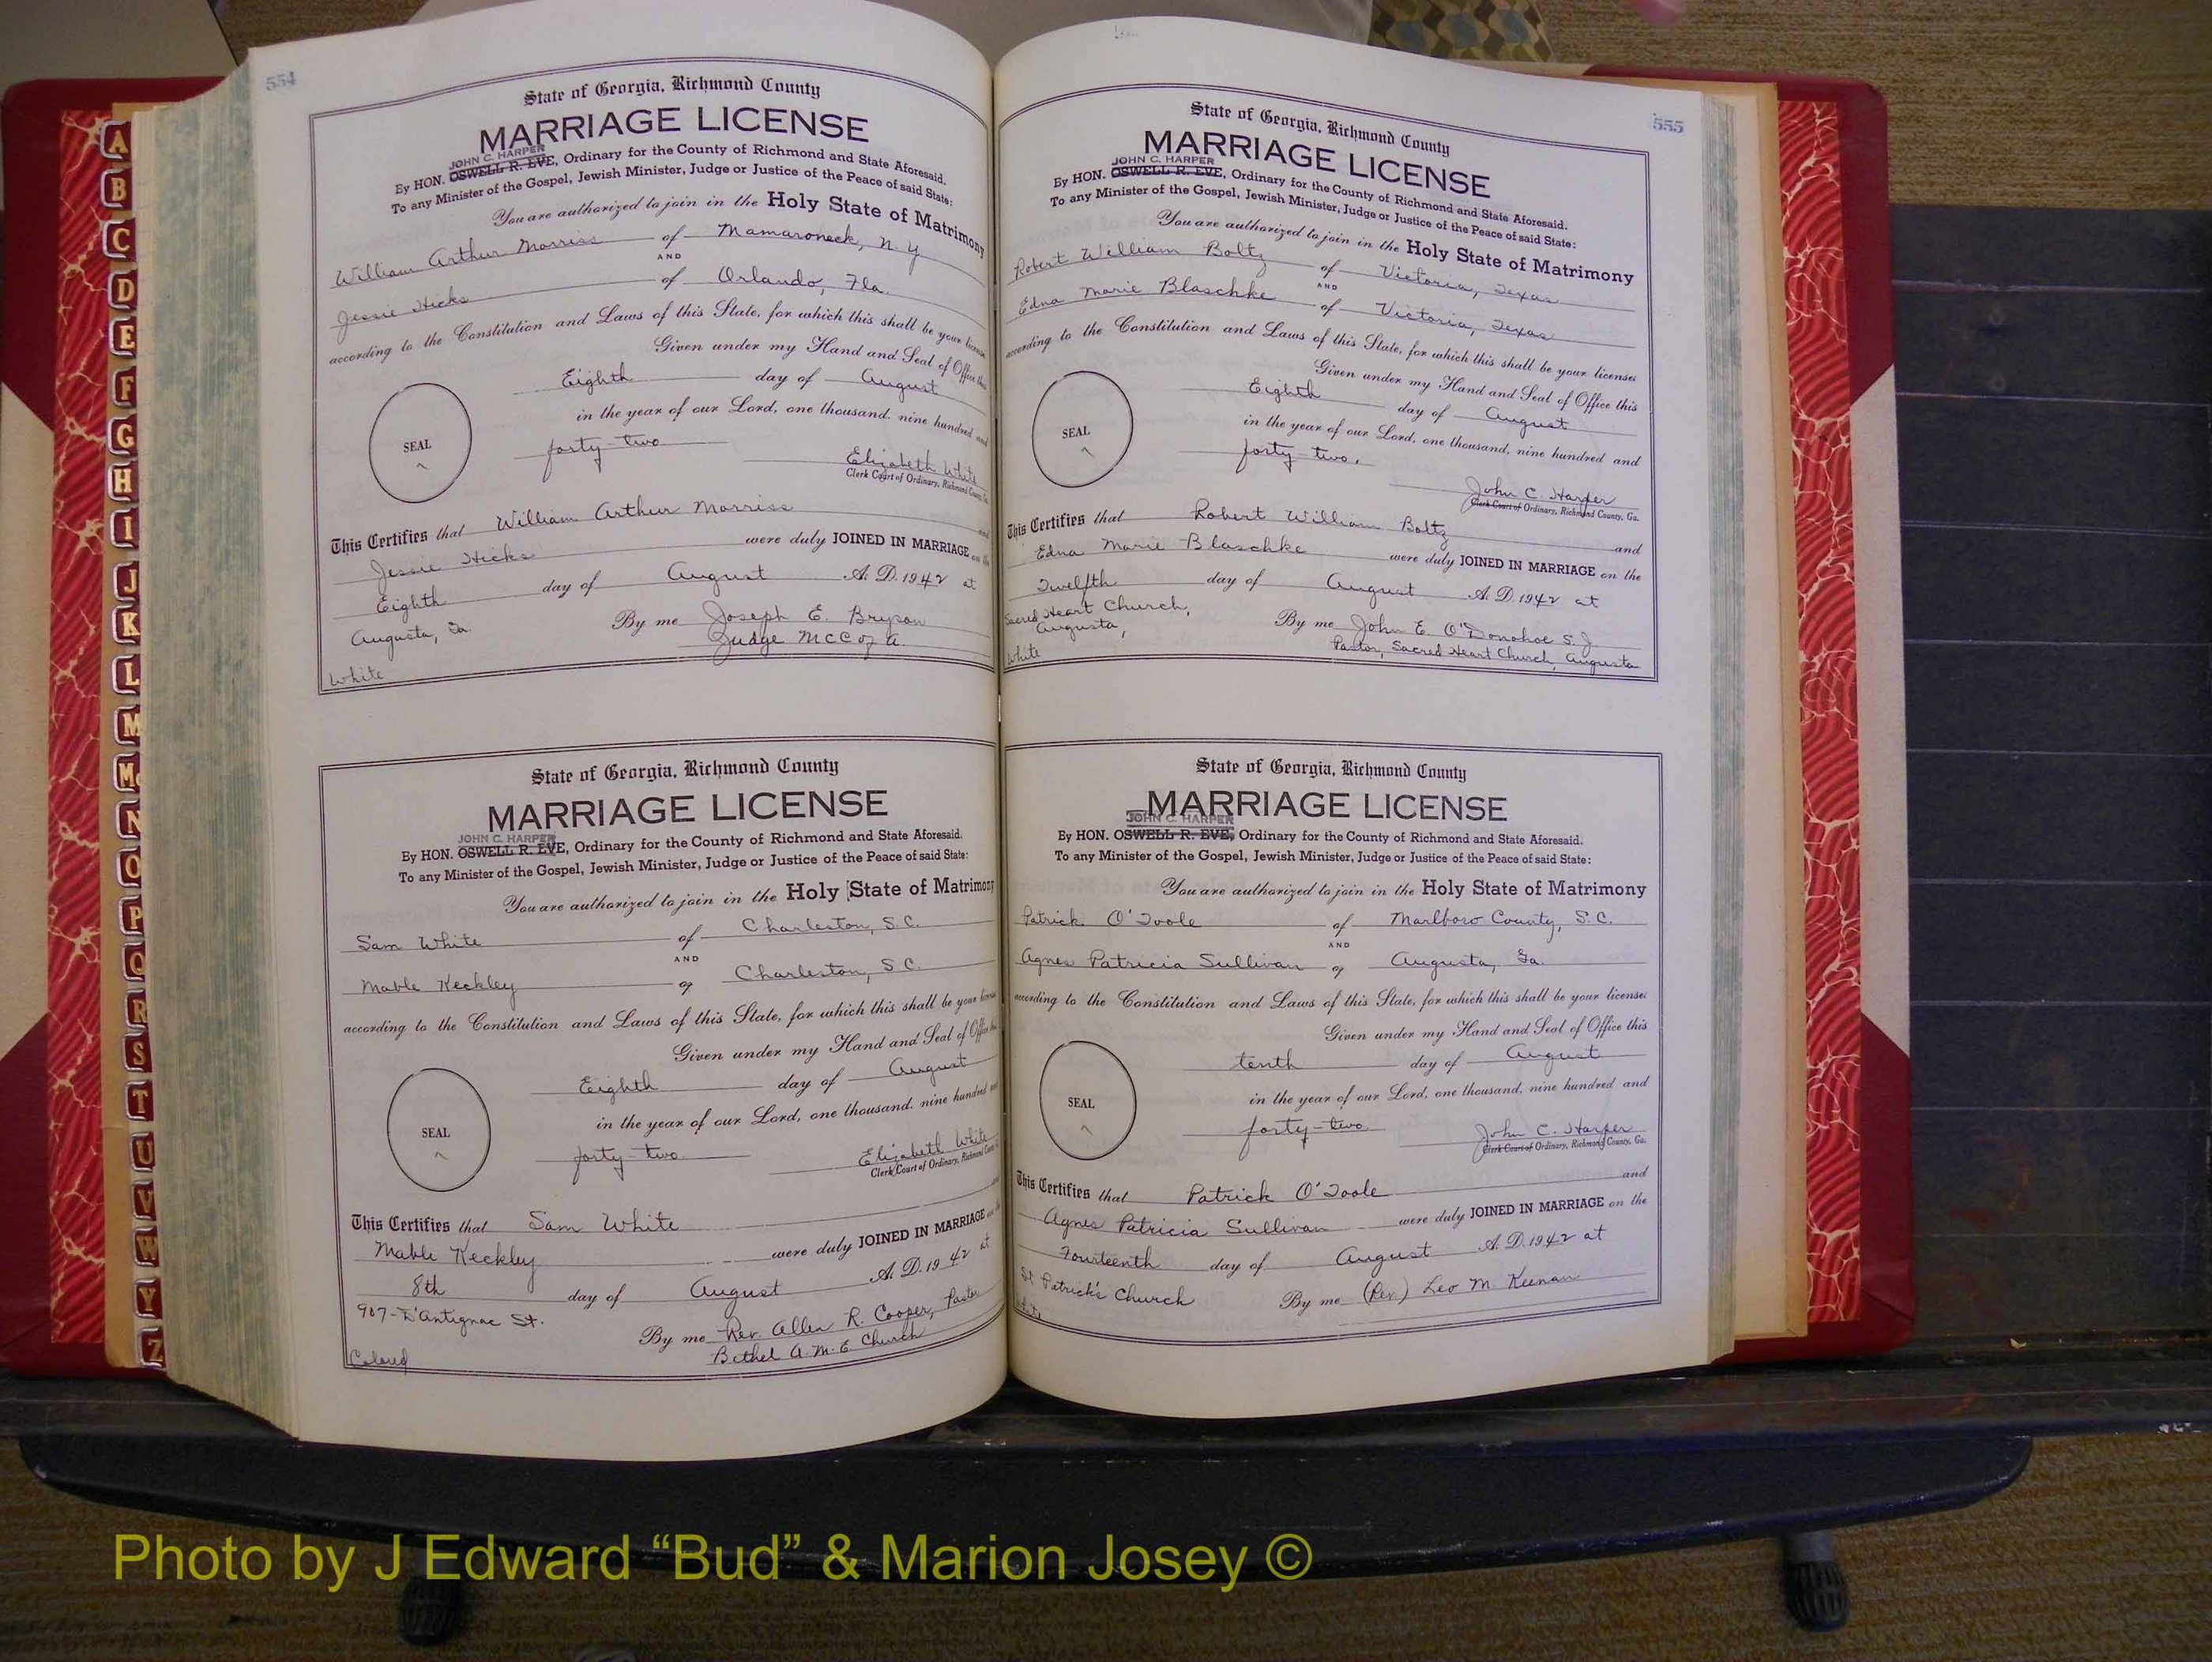 554
State of Georgia, Richmond County
MARRIAGE LICENSE
JOHN C. HARPER
By HON. OSWELL R. EVE, Ordinary for the County of Richmond and State Aforesaid.
To any Minister of the Gospel, Jewish Minister, Judge or Justice of the Peace of said State:
You are authorized to join in the Holy State of Matrimony
William Arthur Morriss of Mamaroneck, N.Y
AND
Jessie Hicks of Orlando, Fla.
according to the Constitution and Laws of this State, for which this shall be your license
Given under my Hand and Seal of Office this
Eighth day of August
in the year of our Lord, one thousand, nine hundred and
forty-two
SEAL
Elizabeth White
Clerk Court of Ordinary, Richmond County, Ga.
This Certifies that William Arthur Morriss and
Jessie Hicks were duly JOINED IN MARRIAGE on the
Eighth day of August A. D. 1942 at
Augusta, Ga. By me Joseph E. Bryson
Judge MCC of A.
White
State of Georgia, Richmond County
MARRIAGE LICENSE
JOHN C. HARPER
By HON. OSWELL R. EVE, Ordinary for the County of Richmond and State Aforesaid.
To any Minister of the Gospel, Jewish Minister, Judge or Justice of the Peace of said State:
You are authorized to join in the Holy State of Matrimony
Sam White of Charleston, S.C.
AND
Mable Keckley of Charleston, S C.
according to the Constitution and Laws of this State, for which this shall be your license
Given under my Hand and Seal of Office this
Eighth day of August
in the year of our Lord, one thousand, nine hundred and
forty-two.
SEAL
Elizabeth White
Clerk Court of Ordinary, Richmond County
This Certifies that Sam White
Mable Keckley were duly JOINED IN MARRIAGE on the
8th day of August A. D. 1942 at
907-D'Antignac St. By me Rev. Allen R. Cooper, Pastor
Bethel A.M.E. Church
Colored
555
State of Georgia, Richmond County
MARRIAGE LICENSE
JOHN C. HARPER
By HON. OSWELL R. EVE, Ordinary for the County of Richmond and State Aforesaid.
To any Minister of the Gospel, Jewish Minister, Judge or Justice of the Peace of said State:
You are authorized to join in the Holy State of Matrimony
Robert William Boltz of Victoria, Texas
AND
Edna Marie Blaschke of Victoria, Texas
according to the Constitution and Laws of this State, for which this shall be your license:
Given under my Hand and Seal of Office this
Eighth day of August
in the year of our Lord, one thousand, nine hundred and
forty-two.
SEAL
John C. Harper
Clerk Court of Ordinary, Richmond County, Ga.
This Certifies that Robert William Boltz and
Edna Marie Blaschke were duly JOINED IN MARRIAGE on the
Twelfth day of August A. D. 1942 at
Sacred Heart Church,
Augusta, By me John E. O'Donohoe S.J.
White Pastor, Sacred Heart Church, Augusta
State of Georgia, Richmond County
MARRIAGE LICENSE
JOHN C. HARPER
By HON. OSWELL R. EVE, Ordinary for the County of Richmond and State Aforesaid.
To any Minister of the Gospel, Jewish Minister, Judge or Justice of the Peace of said State:
You are authorized to join in the Holy State of Matrimony
Patrick O'Toole of Marlboro County, S.C.
AND
Agnes Patricia Sullivan of Augusta, Ga.
according to the Constitution and Laws of this State, for which this shall be your license:
Given under my Hand and Seal of Office this
tenth day of August
in the year of our Lord, one thousand, nine hundred and
forty-two.
SEAL
John C. Harper
Clerk Court of Ordinary, Richmond County, Ga.
This Certifies that Patrick O'Toole and
Agnes Patricia Sullivan were duly JOINED IN MARRIAGE on the
Fourteenth day of August A. D. 1942 at
St Patrick's Church By me (Rev.) Leo M. Keenan
White
A
B
C
D
E
F
G
H
I
J
K
L
M
Mc
N
O
P
Q
R
S
T
U
V
W
Y
Z
Photo by J Edward “Bud” & Marion Josey ©